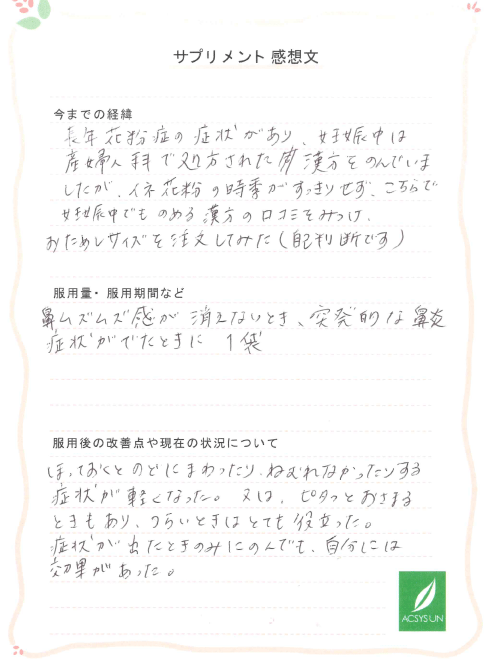 サプリメント 感想文
今までの経緯
長年花粉症の症状があり、妊娠中は
産婦人科で処方された漢方をのんでいま
したが、イネ花粉の時季がすっきりせず、こちらで
妊娠中でものめる漢方の口コミをみつけ、
おためしサイズを注文してみた(自己判断です)
服用量・服用期間など
鼻ムズムズ感が消えないとき、突発的な鼻炎
症状がでたときに 1袋
服用後の改善点や現在の状況について
ほっておくとのどにまわったり、ねむれなかったりする
症状が軽くなった。又は、ピタっとおさまる
ときもあり、つらいときはとても役立った。
症状が出たときのみにのんでも、自分には
効果があった。
ACSYSUN